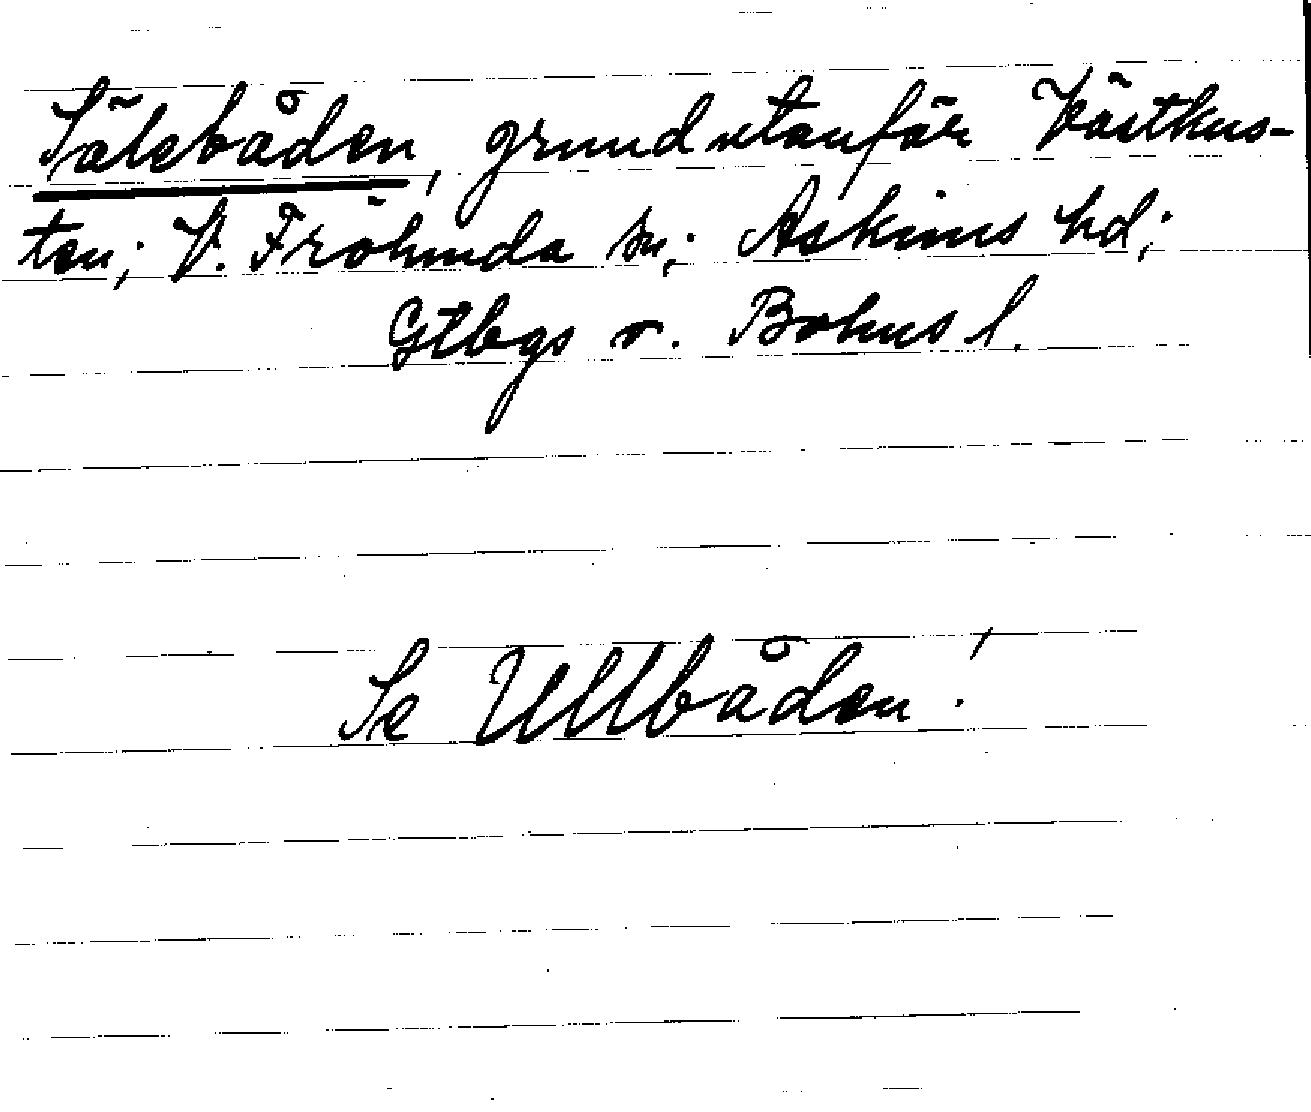 Sälsbåden, grund utanför Västkus-
ten; V. Frölunda sn; Askims hd;
Gtbgs o. Bohus l.
Se Ullbåden!